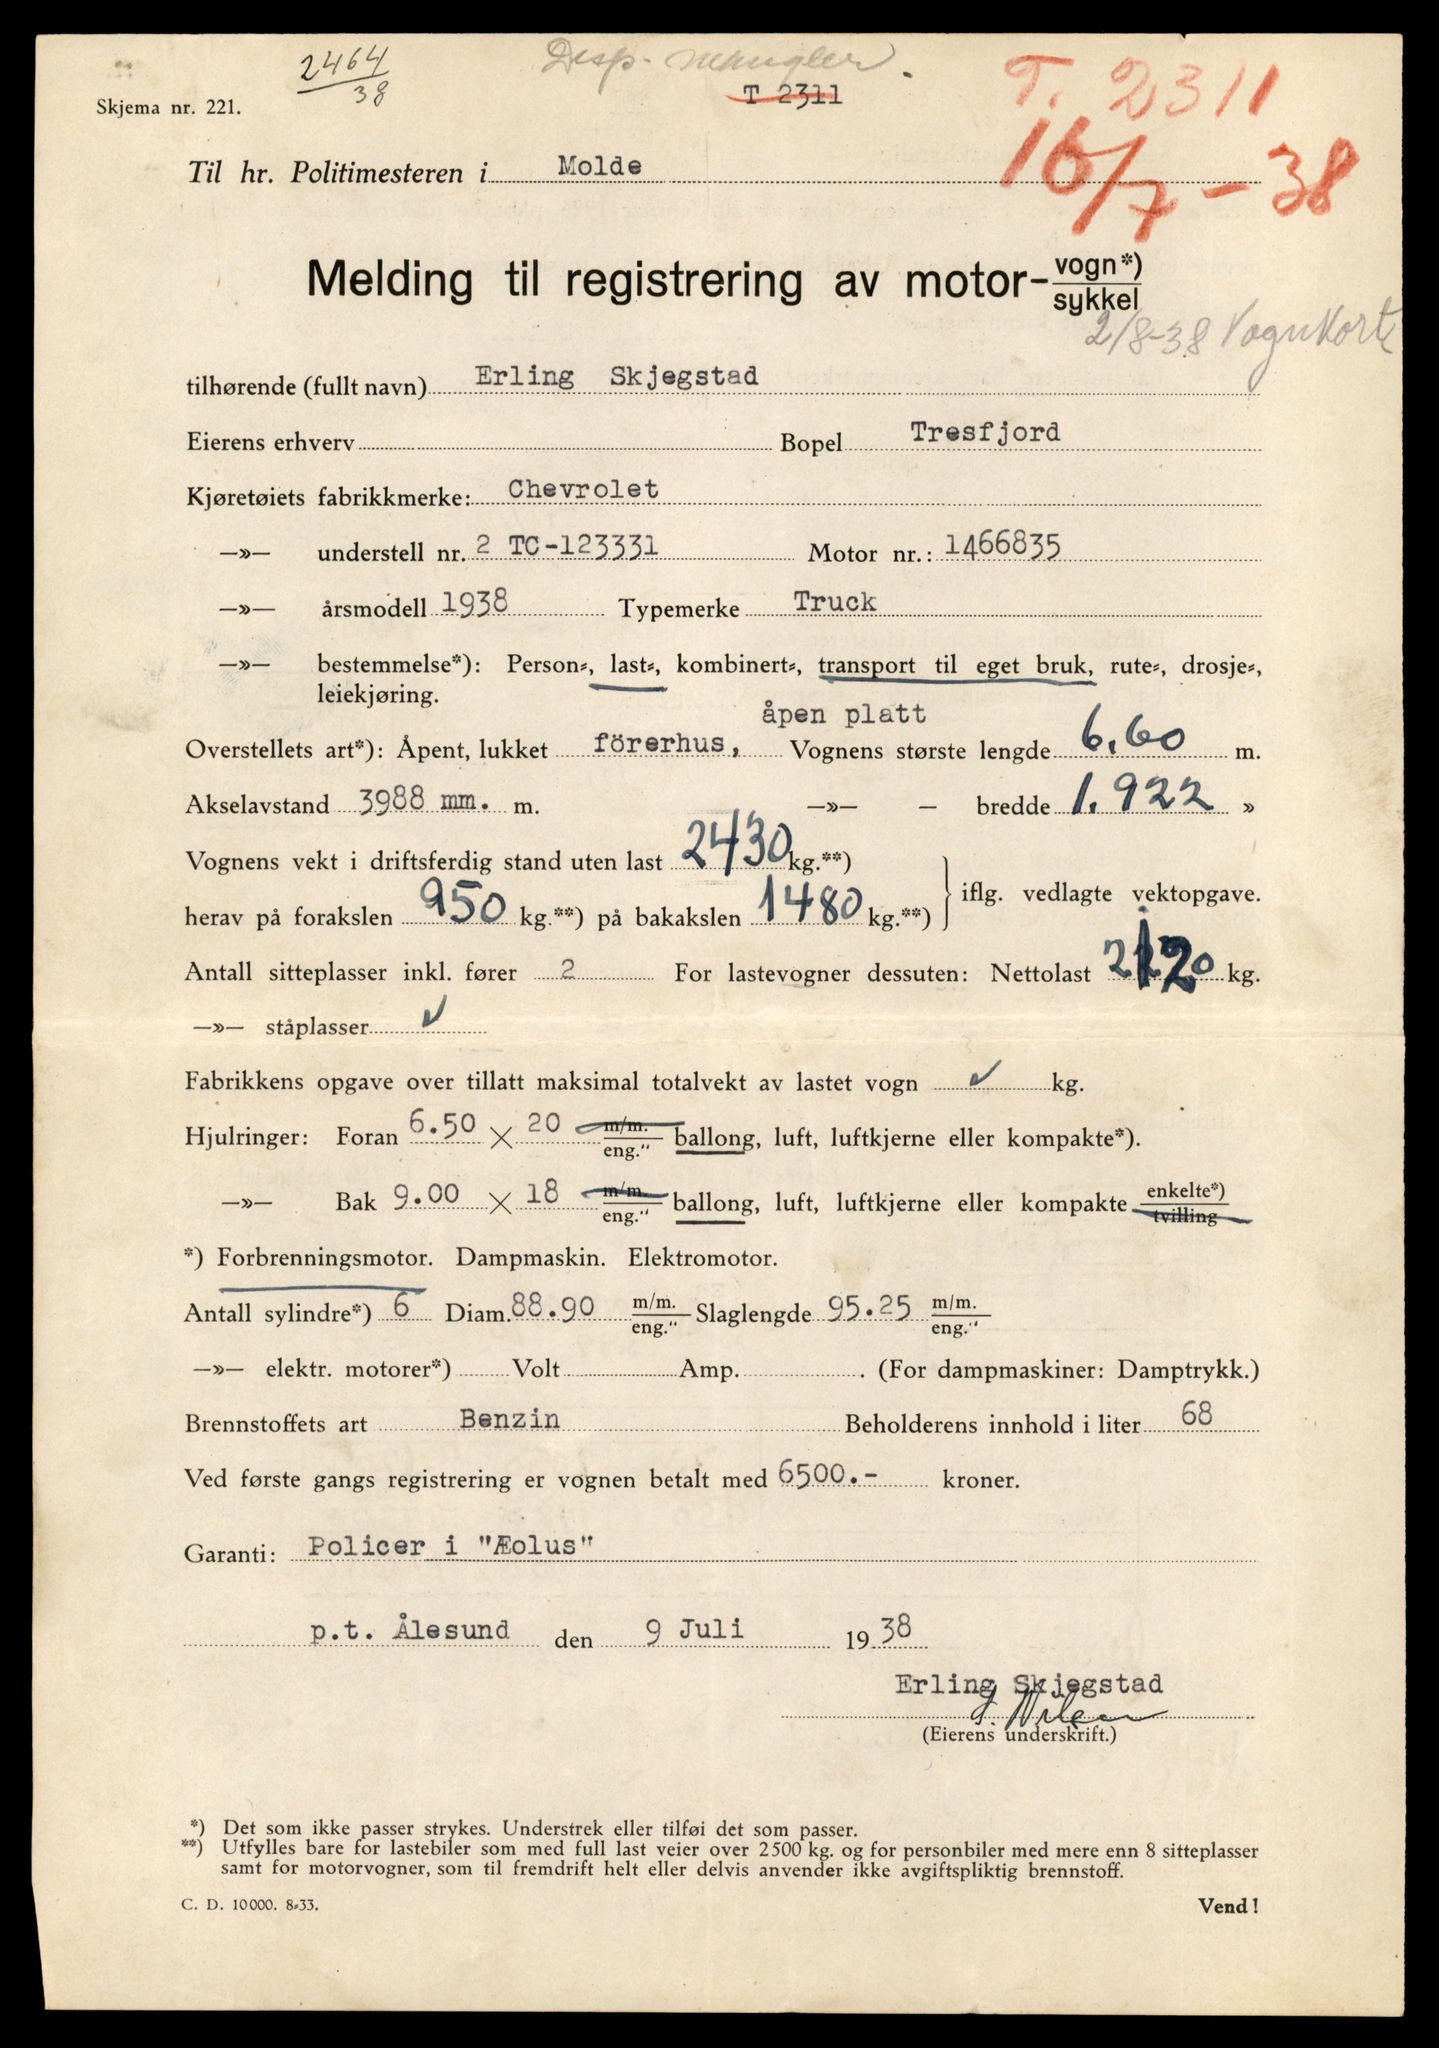 2464
38
Desp. mangler.
T 2311
T. 2311
Skjema nr. 221.
16/7-38
Til hr. Politimesteren i Molde
Melding til registrering av motor- vogn*)
sykkel
2/8-38 Vognkort
tilhørende (fullt navn) Erling Skjegstad
Eierens erhverv Bopel Tresfjord
Kjøretøiets fabrikkmerke: Chevrolet
—»— understell nr. 2 TC-123331 Motor nr.: 1466835
—»— årsmodell 1938 Typemerke Truck
—»— bestemmelse*): Person-, last-, kombinert-, transport til eget bruk, rute-, drosje-,
leiekjøring.
åpen platt
Overstellets art*): Åpent, lukket förerhus, Vognens største lengde 6,60 m.
Akselavstand 3988 mm. m. —»— — bredde 1.922 »
Vognens vekt i driftsferdig stand uten last 2430 kg.**)
herav på forakslen 950 kg.**) på bakakslen 1480 kg.**) iflg. vedlagte vektopgave.
Antall sitteplasser inkl. fører 2 For lastevogner dessuten: Nettolast 2120 kg.
—»— ståplasser ✓
Fabrikkens opgave over tillatt maksimal totalvekt av lastet vogn ✓ kg.
Hjulringer: Foran 6.50 × 20 m/m. eng." ballong, luft, luftkjerne eller kompakte*).
—»— Bak 9.00 × 18 m/m. eng." ballong, luft, luftkjerne eller kompakte enkelte*) tvilling
*) Forbrenningsmotor. Dampmaskin. Elektromotor.
Antall sylindre*) 6 Diam. 88.90 m/m. eng." Slaglengde 95.25 m/m. eng."
—»— elektr. motorer*) Volt Amp. . (For dampmaskiner: Damptrykk.)
Brennstoffets art Benzin Beholderens innhold i liter 68
Ved første gangs registrering er vognen betalt med 6500.- kroner.
Garanti: Policer i "Æolus"
p.t. Ålesund den 9 Juli 19 38
Erling Skjegstad
(Eierens underskrift.)
*) Det som ikke passer strykes. Understrek eller tilføi det som passer.
**) Utfylles bare for lastebiler som med full last veier over 2500 kg. og for personbiler med mere enn 8 sitteplasser
samt for motorvogner, som til fremdrift helt eller delvis anvender ikke avgiftspliktig brennstoff.
C. D. 10000. 8-33.
Vend!